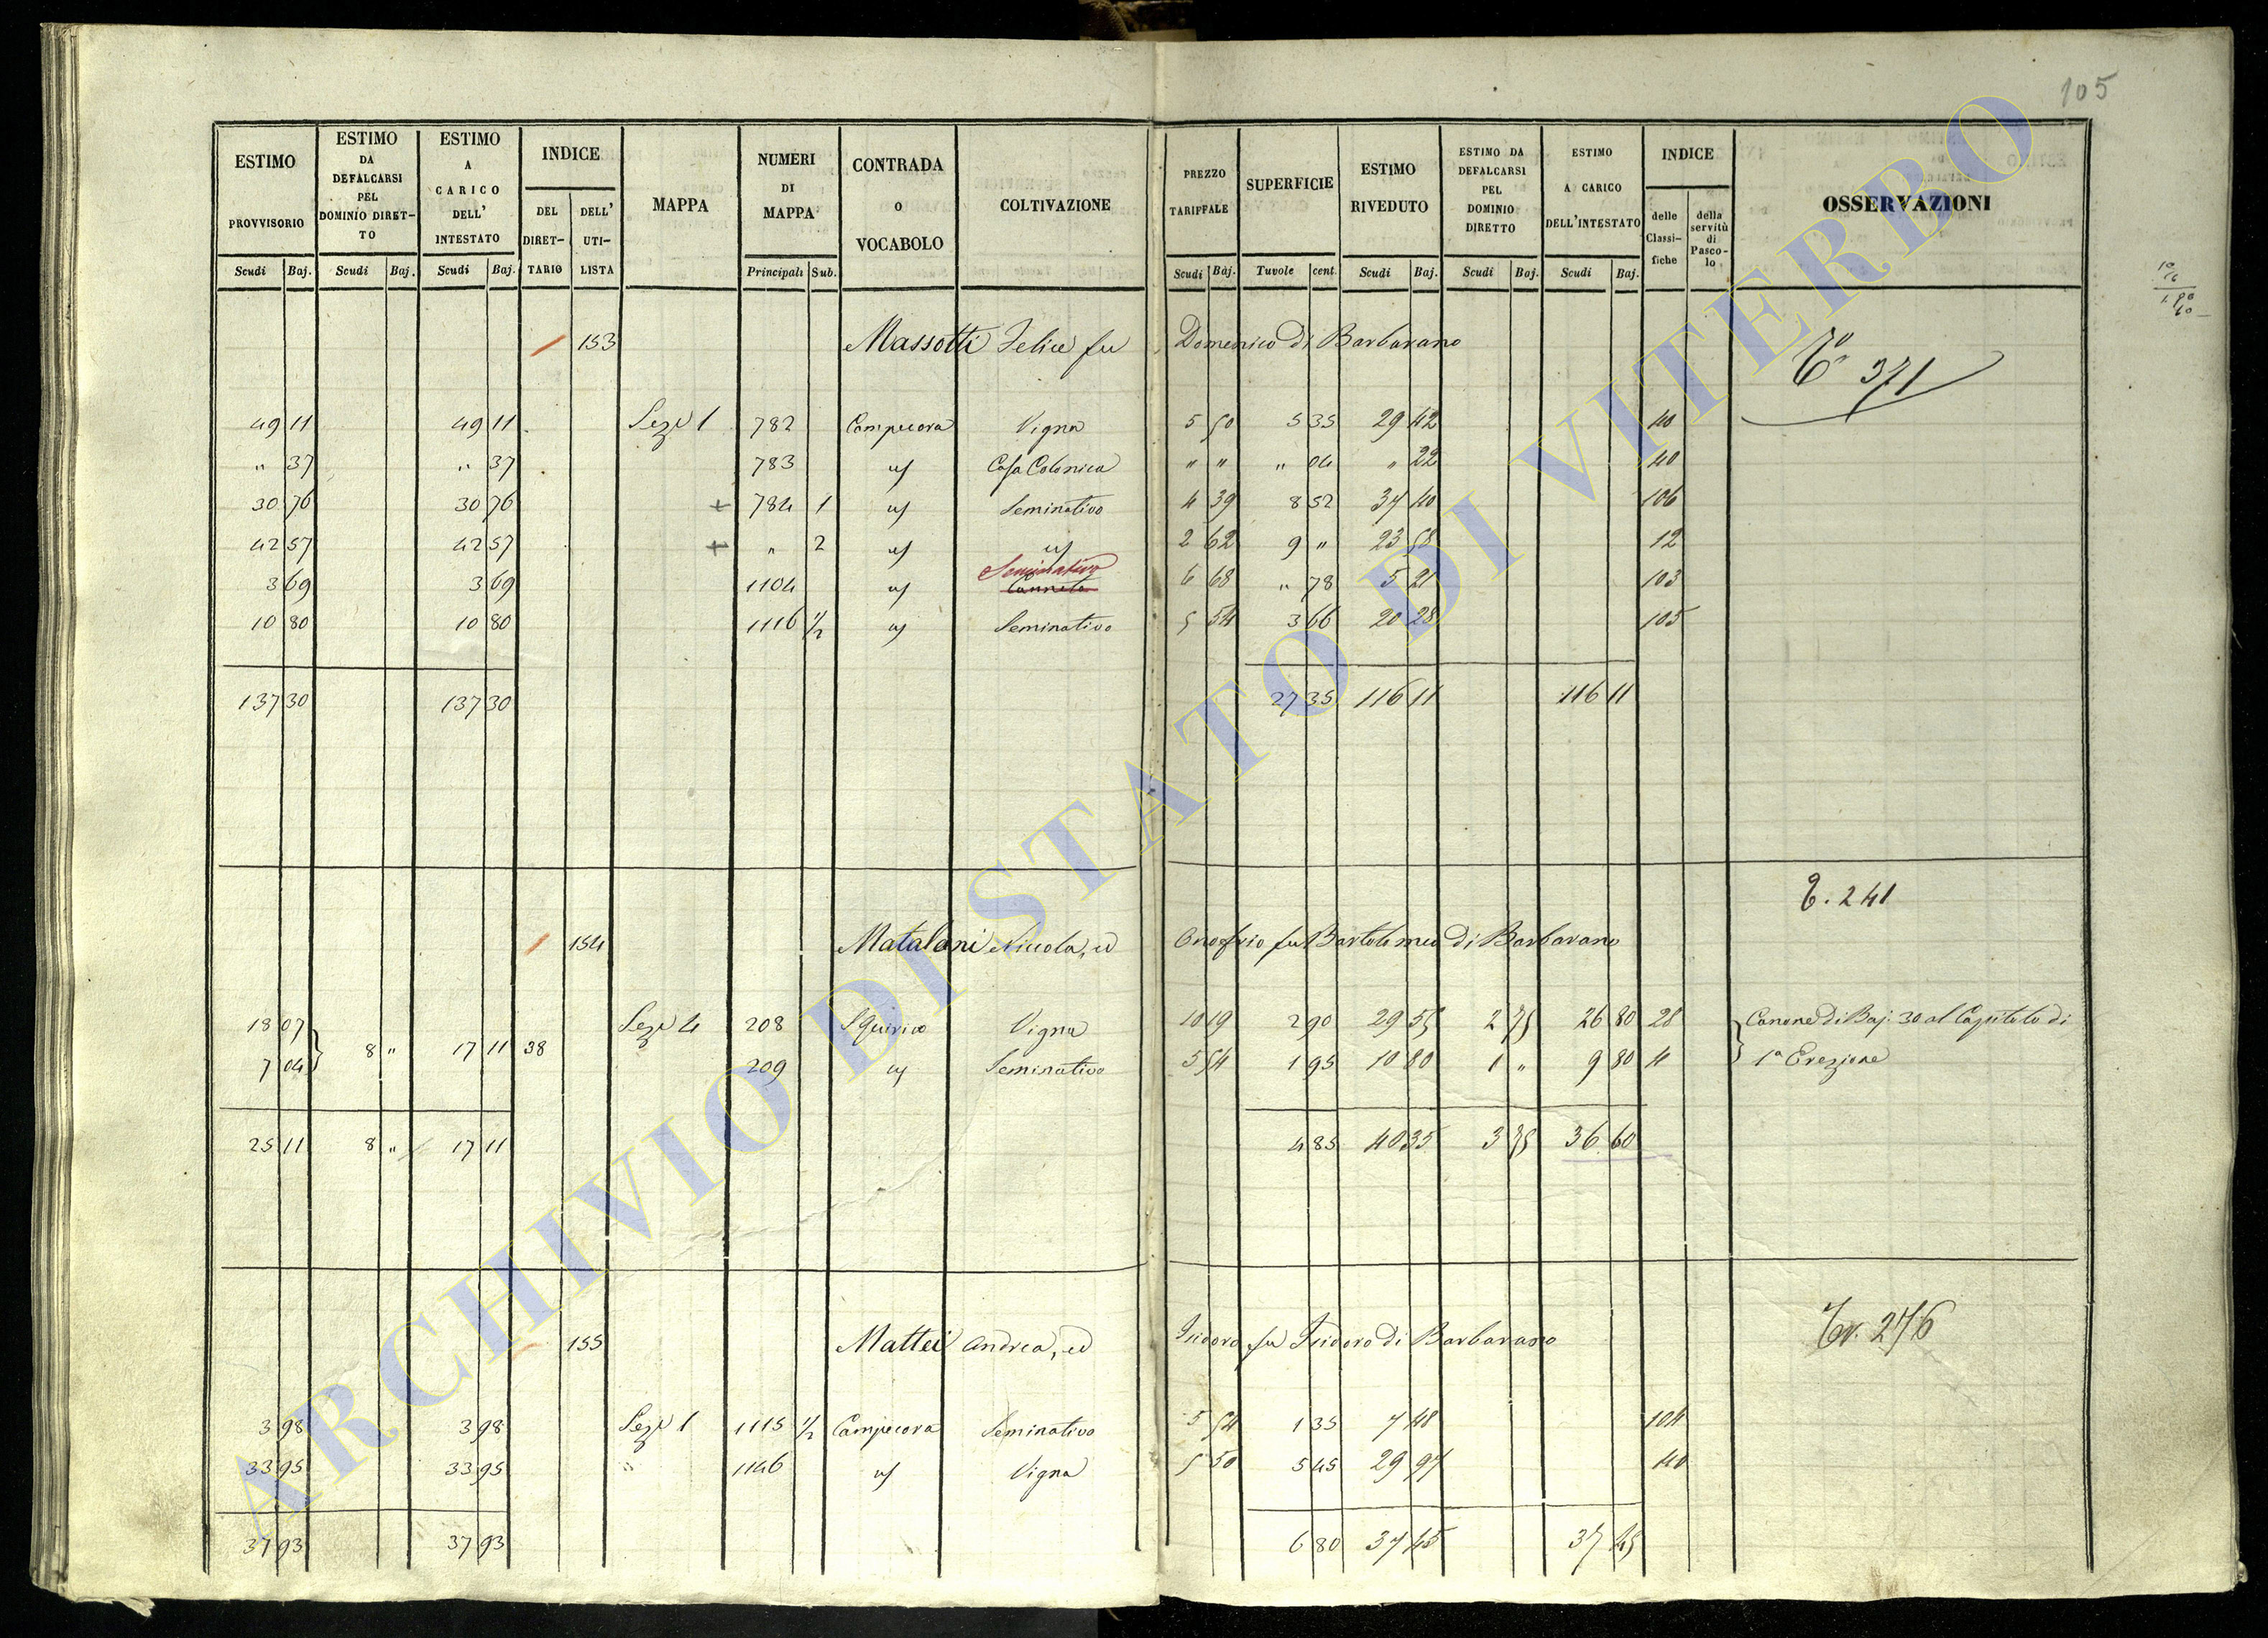 105
ESTIMO PROVVISORIO | ESTIMO DA DEFALCARSI PEL DOMINIO DIRETTO | ESTIMO A CARICO DELL' INTESTATO | INDICE | MAPPA | NUMERI DI MAPPA | CONTRADA O VOCABOLO | COLTIVAZIONE | PREZZO TARIFFALE | SUPERFICIE | ESTIMO RIVEDUTO | ESTIMO DA DEFALCARSI PEL DOMINIO DIRETTO | ESTIMO A CARICO DELL'INTESTATO | INDICE | OSSERVAZIONI
DEL DIRETTARIO | DELL' UTILISTA | delle Classifiche | della servitù di Pascolo
Scudi | Baj. | Scudi | Baj. | Scudi | Baj. | Principali | Sub. | Scudi | Baj. | Tavole | cent. | Scudi | Baj. | Scudi | Baj. | Scudi | Baj.
153 Massotti Felice fu Domenico di Barbarano
371
49 11 49 11 Seze 1 782 Campecora Vigna 5 50 5 35 29 42 40
" 37 " 37 783 " Casa Colonica " " " 04 " 22 40
30 76 30 76 + 784 1 " Seminativo 4 39 8 52 37 40 106
42 57 42 57 + " 2 " " 2 62 9 " 23 58 12
Seminativo
3 69 3 69 1104 " Canneto 6 68 " 78 5 21 103
10 80 10 80 1116 1/2 " Seminativo 5 54 3 66 20 28 105
137 30 137 30 27 35 116 11 116 11
T. 241
154 Matalani Niccola, ed Onofrio fu Bartolomeo di Barbarano
18 07 Seze 4 208 S Quirico Vigna 10 19 2 90 29 55 2 75 26 80 28 Canone di Baj: 30 al Capitolo di
8 " 17 11 38
7 04 209 " Seminativo 5 54 1 95 10 80 1 " 9 80 4 1ª Erezione
25 11 8 " 17 11 4 85 40 35 3 75 36 60
Tr. 276
155 Mattei Andrea, ed Isidoro fu Isidoro di Barbarano
3 98 3 98 Seze 1 1115 1/2 Campecora Seminativo 5 54 1 35 7 48 104
33 95 33 95 " 1146 " Vigna 5 50 5 45 29 97 40
37 93 37 93 6 80 37 45 37 45
ARCHIVIO DI STATO DI VITERBO